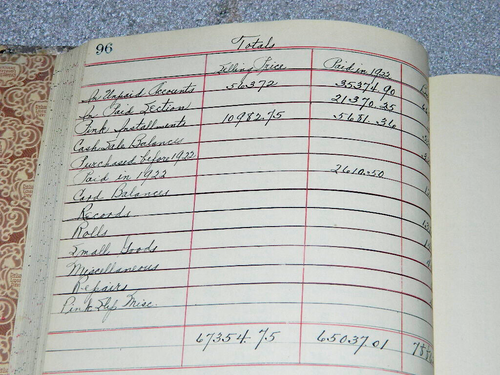 96 Totals
Selling Price Paid in 1922
In Unpaid Accounts 56372 35374.90
In Paid Section 21370.25
Pink Installments 10982.75 5681.36
Cash Sale Balances
Purchased before 1922
Paid in 1922 2610.50
Card Balances
Records
Rolls
Small Goods
Miscellaneous
Repairs
Pink Slip Misc.
67354.75 65037.01